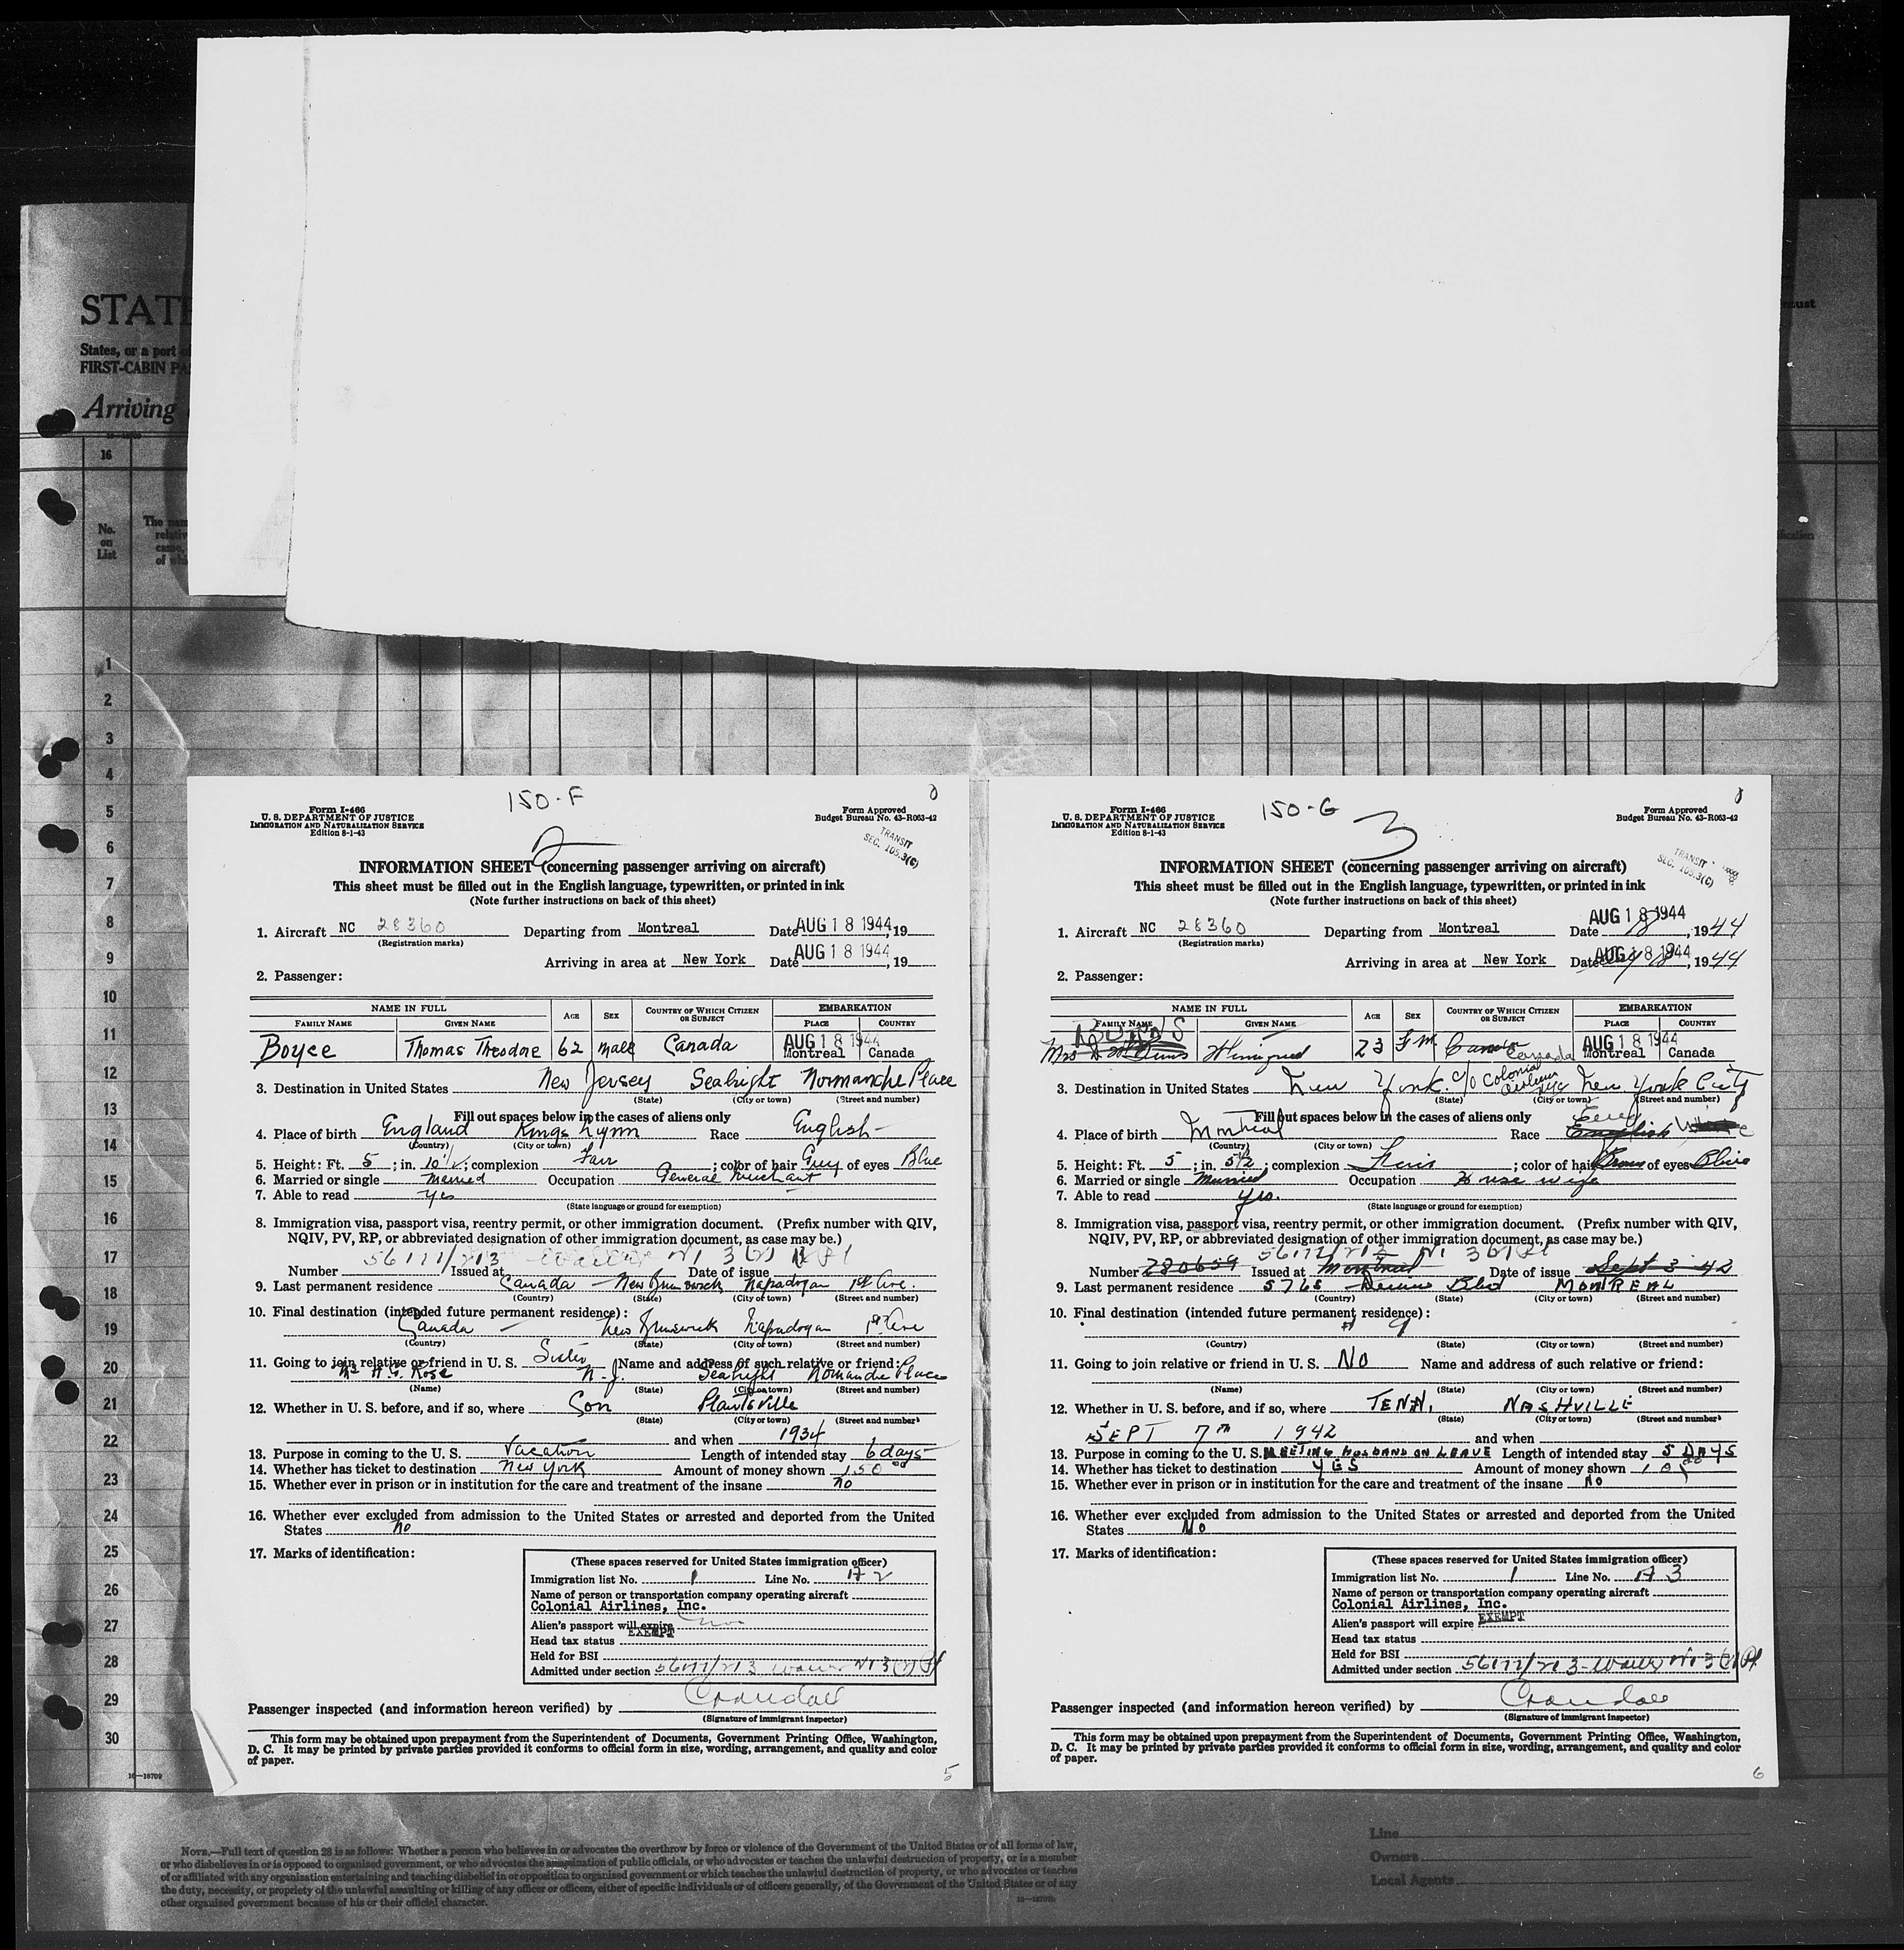 STAT
States, or a port
FIRST-CABIN PA
Arriving
16
No.
on
List
The nam
relativ
came,
of wh
1
2
3
4
5
6
7
8
9
10
11
12
13
14
15
16
17
18
19
20
21
22
23
24
25
26
27
28
29
30
16—18709
150-F
Form I-466
U. S. DEPARTMENT OF JUSTICE
IMMIGRATION AND NATURALIZATION SERVICE
Edition 8-1-43
Form Approved
Budget Bureau No. 43-R063-42
2
TRANSIT
SEC. 105.3(C)
INFORMATION SHEET (concerning passenger arriving on aircraft)
This sheet must be filled out in the English language, typewritten, or printed in ink
(Note further instructions on back of this sheet)
1. Aircraft NC 28360 Departing from Montreal Date AUG 18 1944, 19
(Registration marks)
Arriving in area at New York Date AUG 18 1944, 19
2. Passenger:
NAME IN FULL AGE SEX COUNTRY OF WHICH CITIZEN OR SUBJECT EMBARKATION
FAMILY NAME GIVEN NAME PLACE COUNTRY
AUG 18 1944
Boyce Thomas Theodore 62 male Canada Montreal Canada
3. Destination in United States New Jersey Seabright Normanche Place
(State) (City or town) (Street and number)
Fill out spaces below in the cases of aliens only
4. Place of birth England Kings Lynn Race English
(Country) (City or town)
5. Height: Ft. 5; in. 10 1/2; complexion Fair; color of hair Grey of eyes Blue
6. Married or single Married Occupation General Merchant
7. Able to read Yes
(State language or ground for exemption)
8. Immigration visa, passport visa, reentry permit, or other immigration document. (Prefix number with QIV,
NQIV, PV, RP, or abbreviated designation of other immigration document, as case may be.)
Number 56177/213 Issued at Date of issue
9. Last permanent residence Canada New Brunswick Napadogan 1st Ave.
(Country) (State) (City or town) (Street and number)
10. Final destination (intended future permanent residence):
Canada New Brunswick Napadogan 1st Ave
(Country) (State) (City or town) (Street and number)
11. Going to join relative or friend in U. S. Sister Name and address of such relative or friend:
Rose N. J. Seabright Normandie Place
(Name) (State) (City or town) (Street and number)
12. Whether in U. S. before, and if so, where Con Plantsville
(State) (City or town) (Street and number)
and when 1934
13. Purpose in coming to the U. S. Vacation Length of intended stay 6 days
14. Whether has ticket to destination New York Amount of money shown 150 00
15. Whether ever in prison or in institution for the care and treatment of the insane no
16. Whether ever excluded from admission to the United States or arrested and deported from the United
States no
17. Marks of identification:
(These spaces reserved for United States immigration officer)
Immigration list No. 1 Line No. 2
Name of person or transportation company operating aircraft
Colonial Airlines, Inc.
Alien's passport will expire
EXEMPT
Head tax status
Held for BSI
Admitted under section 56177/213
Passenger inspected (and information hereon verified) by Crandall
(Signature of immigrant inspector)
This form may be obtained upon prepayment from the Superintendent of Documents, Government Printing Office, Washington,
D. C. It may be printed by private parties provided it conforms to official form in size, wording, arrangement, and quality and color
of paper.
5
150-G
Form I-466
U. S. DEPARTMENT OF JUSTICE
IMMIGRATION AND NATURALIZATION SERVICE
Edition 8-1-43
Form Approved
Budget Bureau No. 43-R063-42
3
TRANSIT
SEC. 105.3(C)
INFORMATION SHEET (concerning passenger arriving on aircraft)
This sheet must be filled out in the English language, typewritten, or printed in ink
(Note further instructions on back of this sheet)
1. Aircraft NC 28360 Departing from Montreal Date AUG 18 1944, 1944
(Registration marks)
Arriving in area at New York Date AUG 18 1944, 1944
2. Passenger:
NAME IN FULL AGE SEX COUNTRY OF WHICH CITIZEN OR SUBJECT EMBARKATION
FAMILY NAME GIVEN NAME PLACE COUNTRY
BURNS AUG 18 1944
Mrs 23 Fm Canada Montreal Canada
3. Destination in United States New York. c/o Colonial Airlines New York City
(State) (City or town) (Street and number)
Fill out spaces below in the cases of aliens only
4. Place of birth Montreal Race English
(Country) (City or town)
5. Height: Ft. 5; in. 5 1/2; complexion; color of hair Brown of eyes
6. Married or single Married Occupation House wife
7. Able to read yes.
(State language or ground for exemption)
8. Immigration visa, passport visa, reentry permit, or other immigration document. (Prefix number with QIV,
NQIV, PV, RP, or abbreviated designation of other immigration document, as case may be.)
56177/213
Number 280659 Issued at Montreal Date of issue Sept 3 42
9. Last permanent residence 5765 MONTREAL
(Country) (State) (City or town) (Street and number)
10. Final destination (intended future permanent residence):
(Country) (State) (City or town) (Street and number)
11. Going to join relative or friend in U. S. NO Name and address of such relative or friend:
(Name) (State) (City or town) (Street and number)
12. Whether in U. S. before, and if so, where TENN. NASHVILLE
(State) (City or town) (Street and number)
SEPT 7th 1942 and when
13. Purpose in coming to the U. S. MEETING HUSBAND ON LEAVE Length of intended stay 5 DAYS
14. Whether has ticket to destination YES Amount of money shown
15. Whether ever in prison or in institution for the care and treatment of the insane NO
16. Whether ever excluded from admission to the United States or arrested and deported from the United
States NO
17. Marks of identification:
(These spaces reserved for United States immigration officer)
Immigration list No. 1 Line No. 3
Name of person or transportation company operating aircraft
Colonial Airlines, Inc.
Alien's passport will expire EXEMPT
Head tax status
Held for BSI
Admitted under section 56177/213
Passenger inspected (and information hereon verified) by Crandall
(Signature of immigrant inspector)
This form may be obtained upon prepayment from the Superintendent of Documents, Government Printing Office, Washington,
D. C. It may be printed by private parties provided it conforms to official form in size, wording, arrangement, and quality and color
of paper.
6
NOTE.—Full text of question 28 is as follows: Whether a person who believes in or advocates the overthrow by force or violence of the Government of the United States or of all forms of law,
or who disbelieves in or is opposed to organized government, or who advocates the assassination of public officials, or who advocates or teaches the unlawful destruction of property, or is a member
of or affiliated with any organization entertaining and teaching disbelief in or opposition to organized government or which teaches the unlawful destruction of property, or who advocates or teaches
the duty, necessity, or propriety of the unlawful assaulting or killing of any officer or officers, either of specific individuals or of officers generally, of the Government of the United States or of any
other organized government because of his or their official character.
Line
Owners
Local Agents